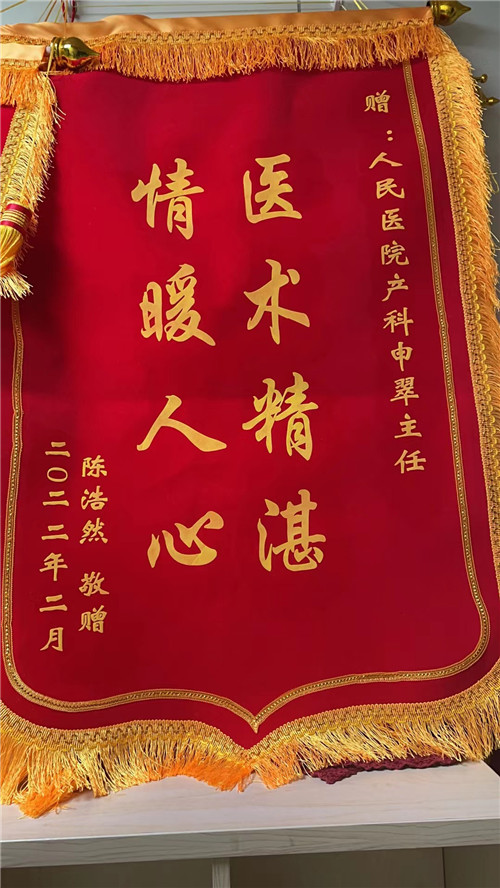 赠：人民医院产科申翠主任
医术精湛
情暖人心
陈浩然 敬赠
二〇二二年二月